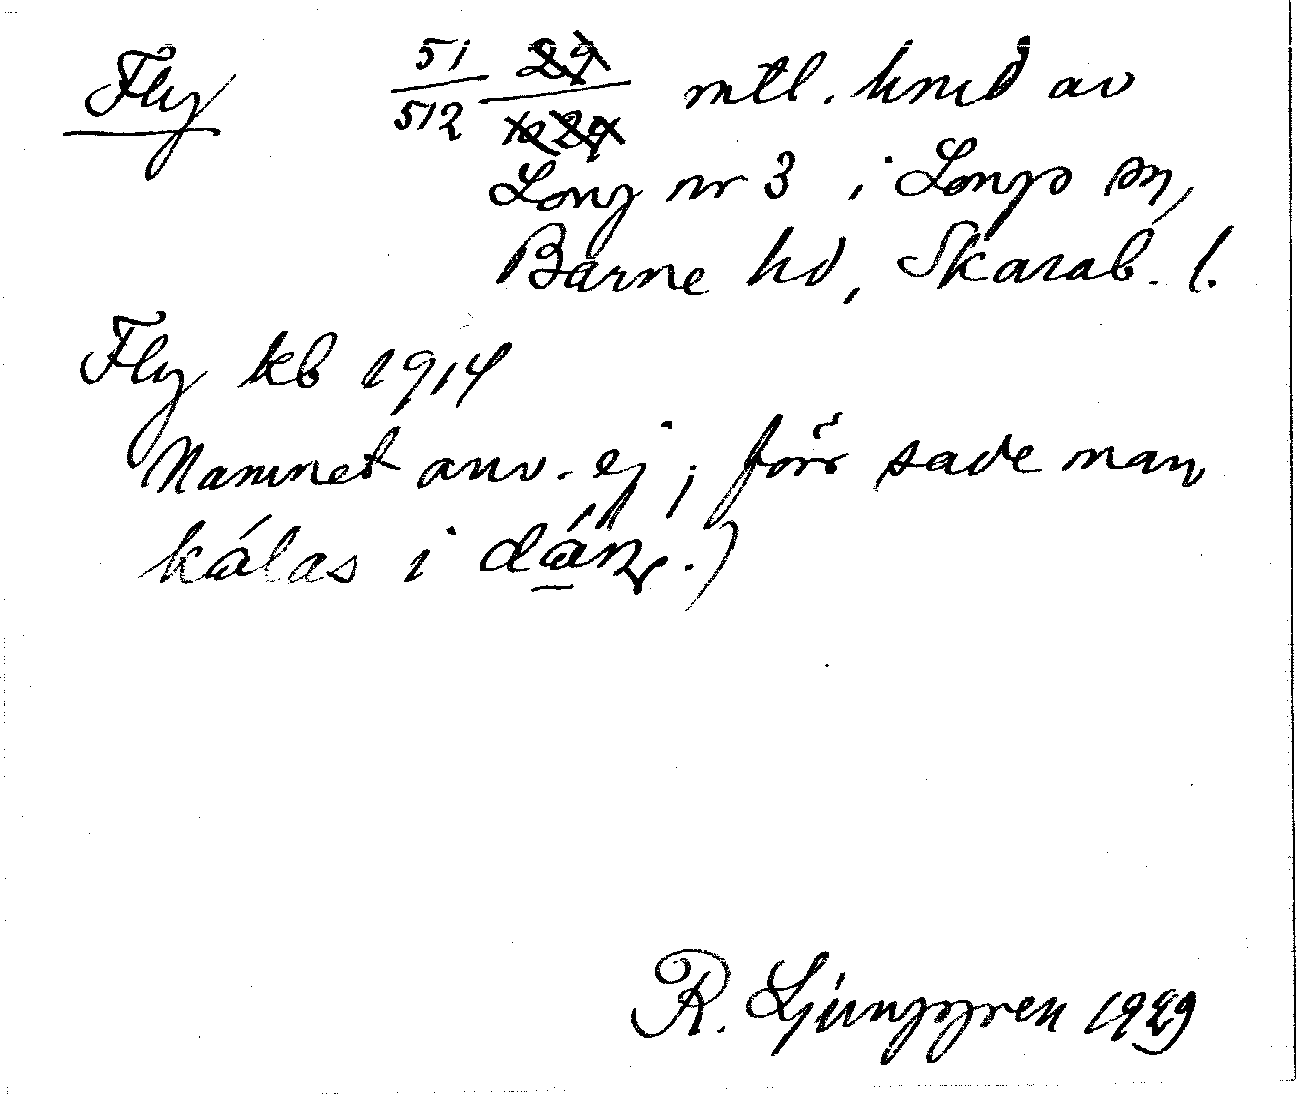 Fly 51/512 29/1029 mtl. hmd av
Long nr 3 i Longs sn,
Barne hd, Skarab. l.
Fly kb 1914
Namnet anv. ej; förr sade man
kálas i dáŋ.)
R. Ljunggren 1929